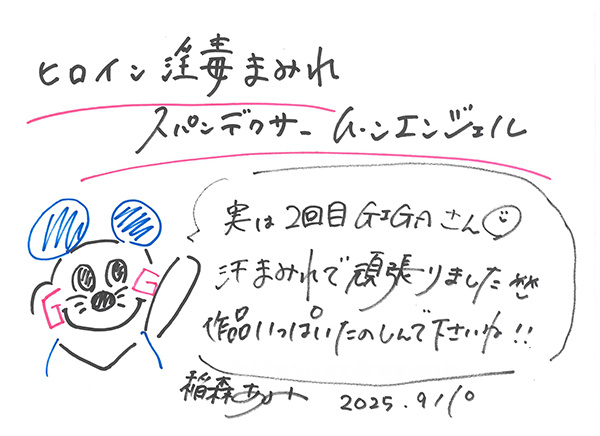 ヒロイン淫毒まみれ
スパンデクサー ムーンエンジェル
実は2回目GIGAさん
汗まみれで頑張りました
作品いっぱいたのしんで下さいね!!
G G
稲森
2025.9/10